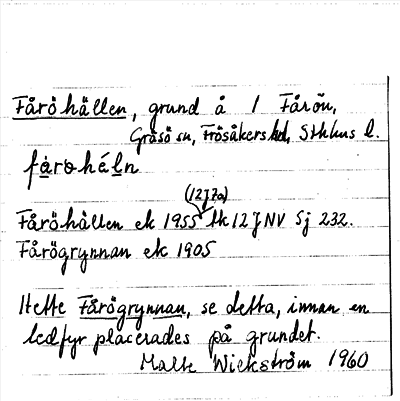 Fåröhällen, grund å / Fårön,
Gräsö sn, Frösåkers hd, Sthlms l.
fȧrohéln
(12J7a)
Fåröhällen ek 1955 tk 12 J NV Sj 232.
Fårögrynnan ek 1905
Hette Fårögrynnan, se detta, innan en
ledfyr placerades på grundet.
Malte Wickström 1960